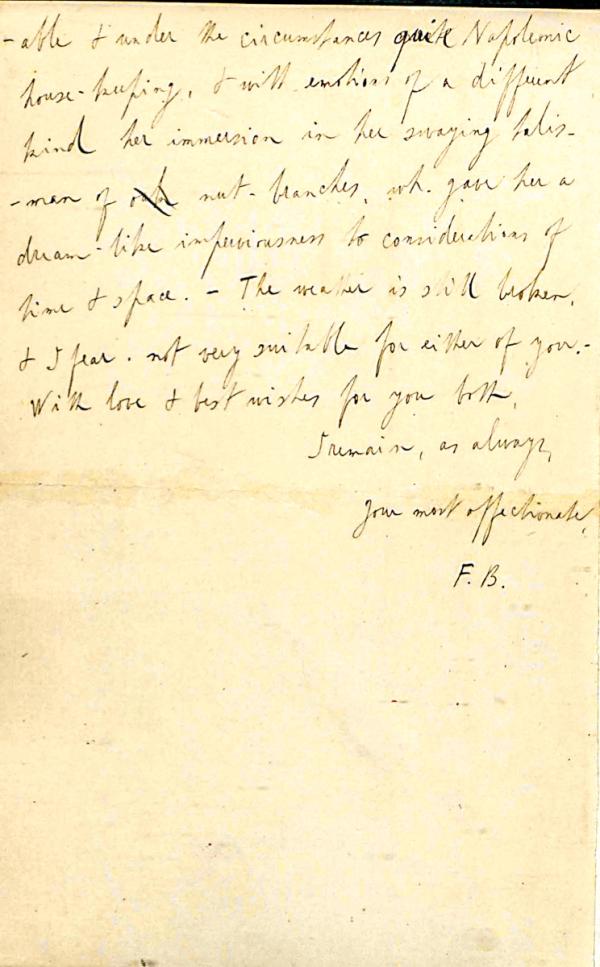 -able & under the circumstances quite Napoleonic
house-keeping, & with emotions of a different
kind her immersion in her swaying talis-
-man of oak nut-branches, wh. gave her a
dream-like imperviousness to considerations of
time & space. - The weather is still broken,
& I fear. not very suitable for either of you.-
With love & best wishes for you both,
I remain, as always,
your most affectionate,
F. B.